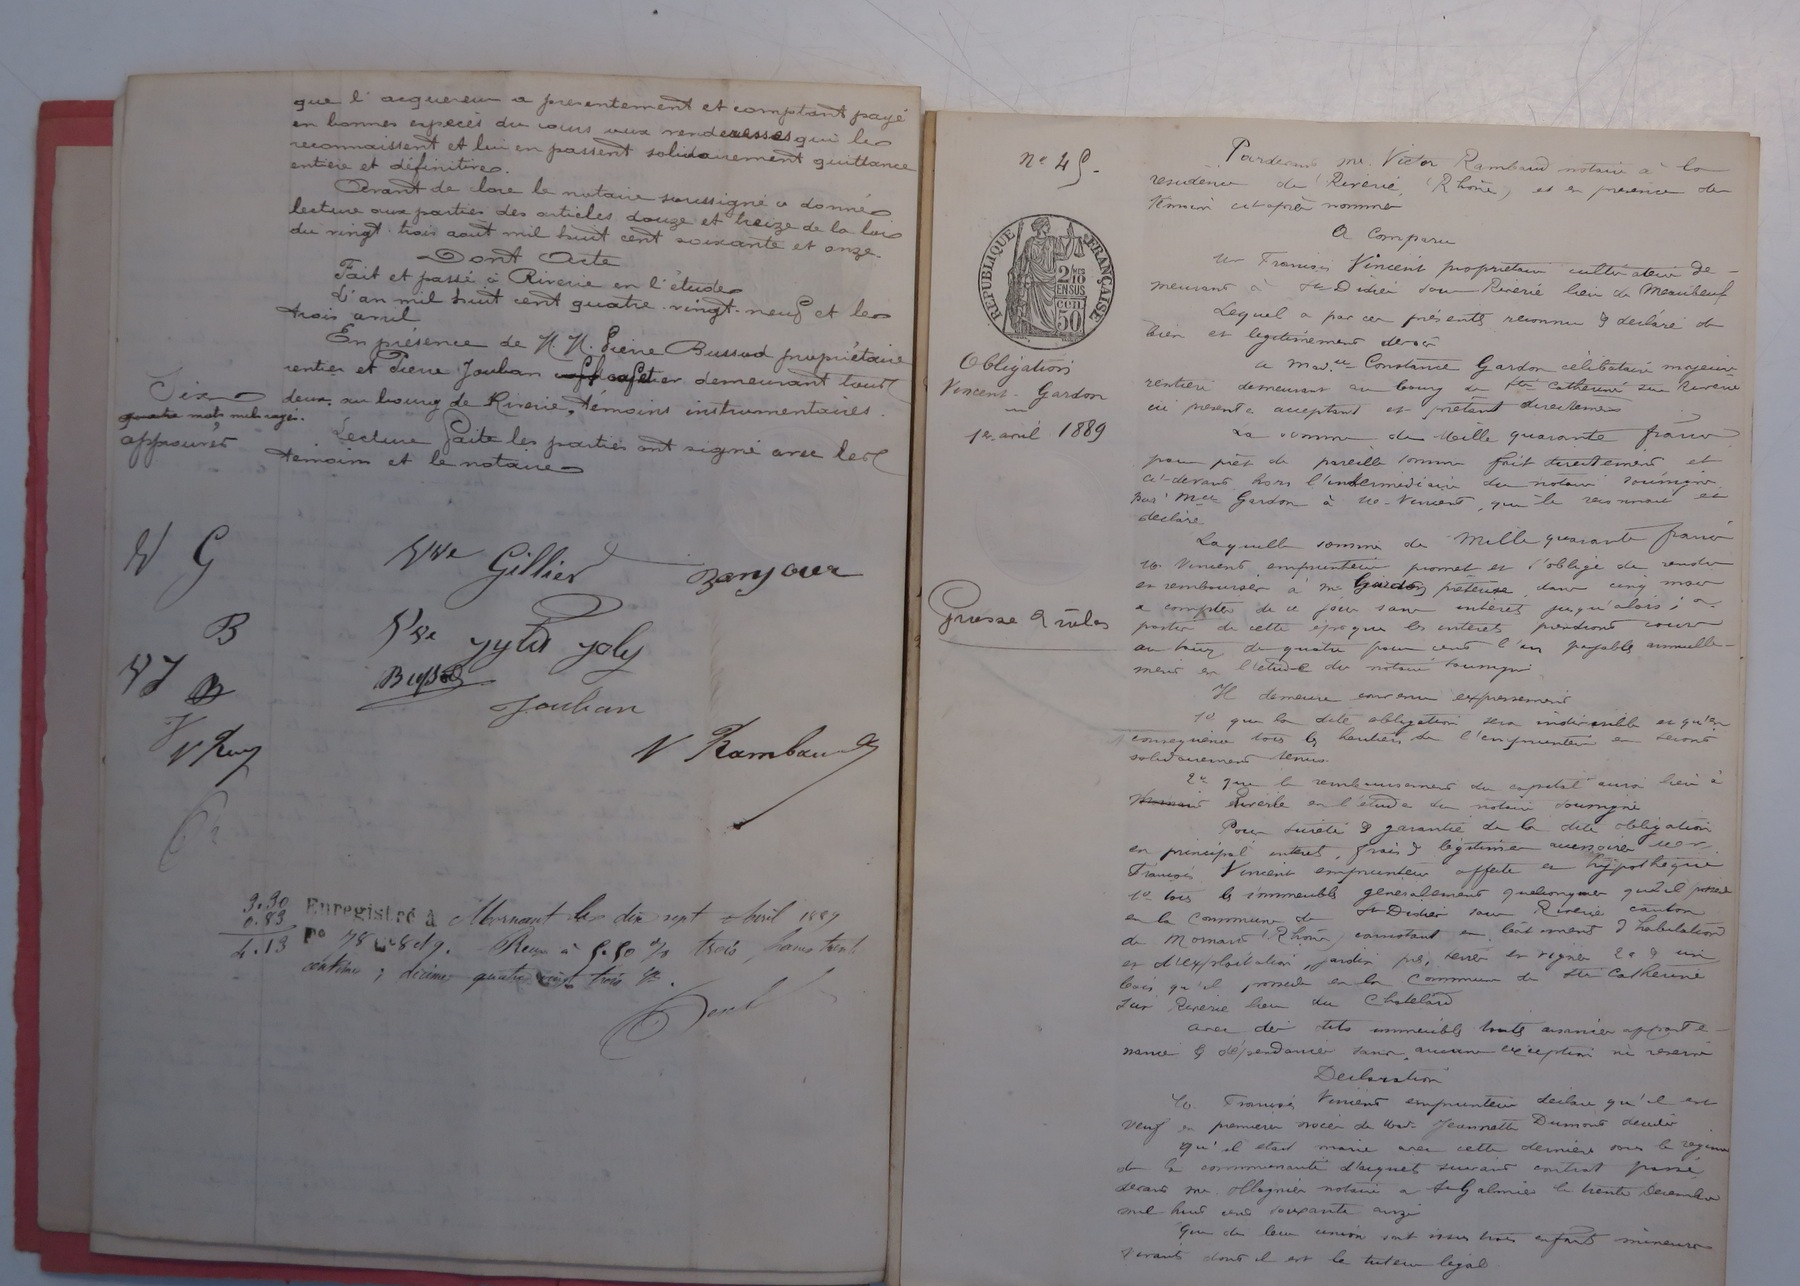 que l'acquereur a presentement et comptant payé
en bonnes especes du cours aux venderesses qui le
reconnaissent et lui en passent solidairement quittance
entiere et définitive.
Avant de clore le notaire soussigné a donné
lecture aux parties des articles douze et treize de la loi
du vingt trois août mil huit cent soixante et onze.
Dont Acte
Fait et passé à Riverie en l'étude
L'an mil huit cent quatre-vingt-neuf et le
trois avril
En présence de M. M. Pierre Bussod propriétaire
rentier et Pierre Jouban cafetier demeurant tous
deux au bourg de Riverie, témoins instrumentaires.
Six
quatre mots mots rayés
approuvés
Lecture faite les parties ont signé avec les
témoins et le notaire
G
Vve Gillier
Bonjour
B
Vve Joly
Bussod
Jouban
V Rambaud
3.30
0.83
4.13
Enregistré à Mornant le dix sept Avril 1889
Fo 78 c 8 Reçu à 5.50 % trois francs trente
centimes; décimes quatre vingt trois c.
No 45.
RÉPUBLIQUE FRANÇAISE
2/10
EN SUS
50 cen
Obligation
Vincent - Gardon
1er avril 1889
Grosse 2 rôles
Pardevant Me Victor Rambaud notaire à la
residence de Riverie, (Rhône), et en présence des
témoins ci-après nommés
A Comparu
Mr François Vincent propriétaire cultivateur de-
meurant à St Didier sous Riverie lieu de
Lequel a par ces présentes reconnu & déclaré
bien et légitimement devoir
a Made lle Constance Gardon célibataire majeure
rentiere demeurant au bourg de Ste Catherine sur Riverie
ici présente acceptant et prêtant directement
La somme de Mille quarante francs
pour prêt de pareille somme fait directement et
ci-devant hors l'intermédiaire du notaire soussigné
par Mlle Gardon à M. Vincent, qui le reconnait et
déclare
Laquelle somme de Mille quarante francs
M. Vincent emprunteur promet et s'oblige de rendre
et rembourser à Mlle Gardon prêteuse, dans cinq mois
a compter de ce jour sans intérêts jusqu'alors; a
partir de cette époque les intérêts prendront cours
au taux de quatre pour cent l'an payables annuelle-
ment en l'étude du notaire soussigné
Il demeure convenu expressément
1o que la dite obligation sera indivisible et qu'en
conséquence tous les héritiers de l'emprunteur en seront
solidairement tenus
2o que le remboursement du capital aura lieu à
Riverie en l'étude du notaire soussigné
Pour sureté & garantie de la dite obligation
en principal intérêts, frais & légitimes accessoires Mr
François Vincent emprunteur affecte et hypothèque
1o tous les immeubles généralement quelconques qu'il possède
en la Commune de St Didier sous Riverie canton
de Mornant (Rhône) consistant en bâtiments d'habitation
et d'exploitation, jardin pré, terres et vignes 2o & un
bois qu'il possède en la Commune de Ste Catherine
sur Riverie lieu du Chatelard
avec des dits immeubles toutes aisances apparte-
nances & dépendances sans aucune exception ni réserve
Déclaration
M. François Vincent emprunteur déclare qu'il est
veuf en premieres noces de Made Jeannette Dumont décédée
qu'il était marié avec cette dernière sous le régime
de la communauté d'acquets suivant contrat passé
devant Me Ollagnier notaire a St Galmier le trente Décembre
mil huit cent soixante onze
Que de leur union sont issus trois enfants mineurs
vivants dont il est le tuteur légal